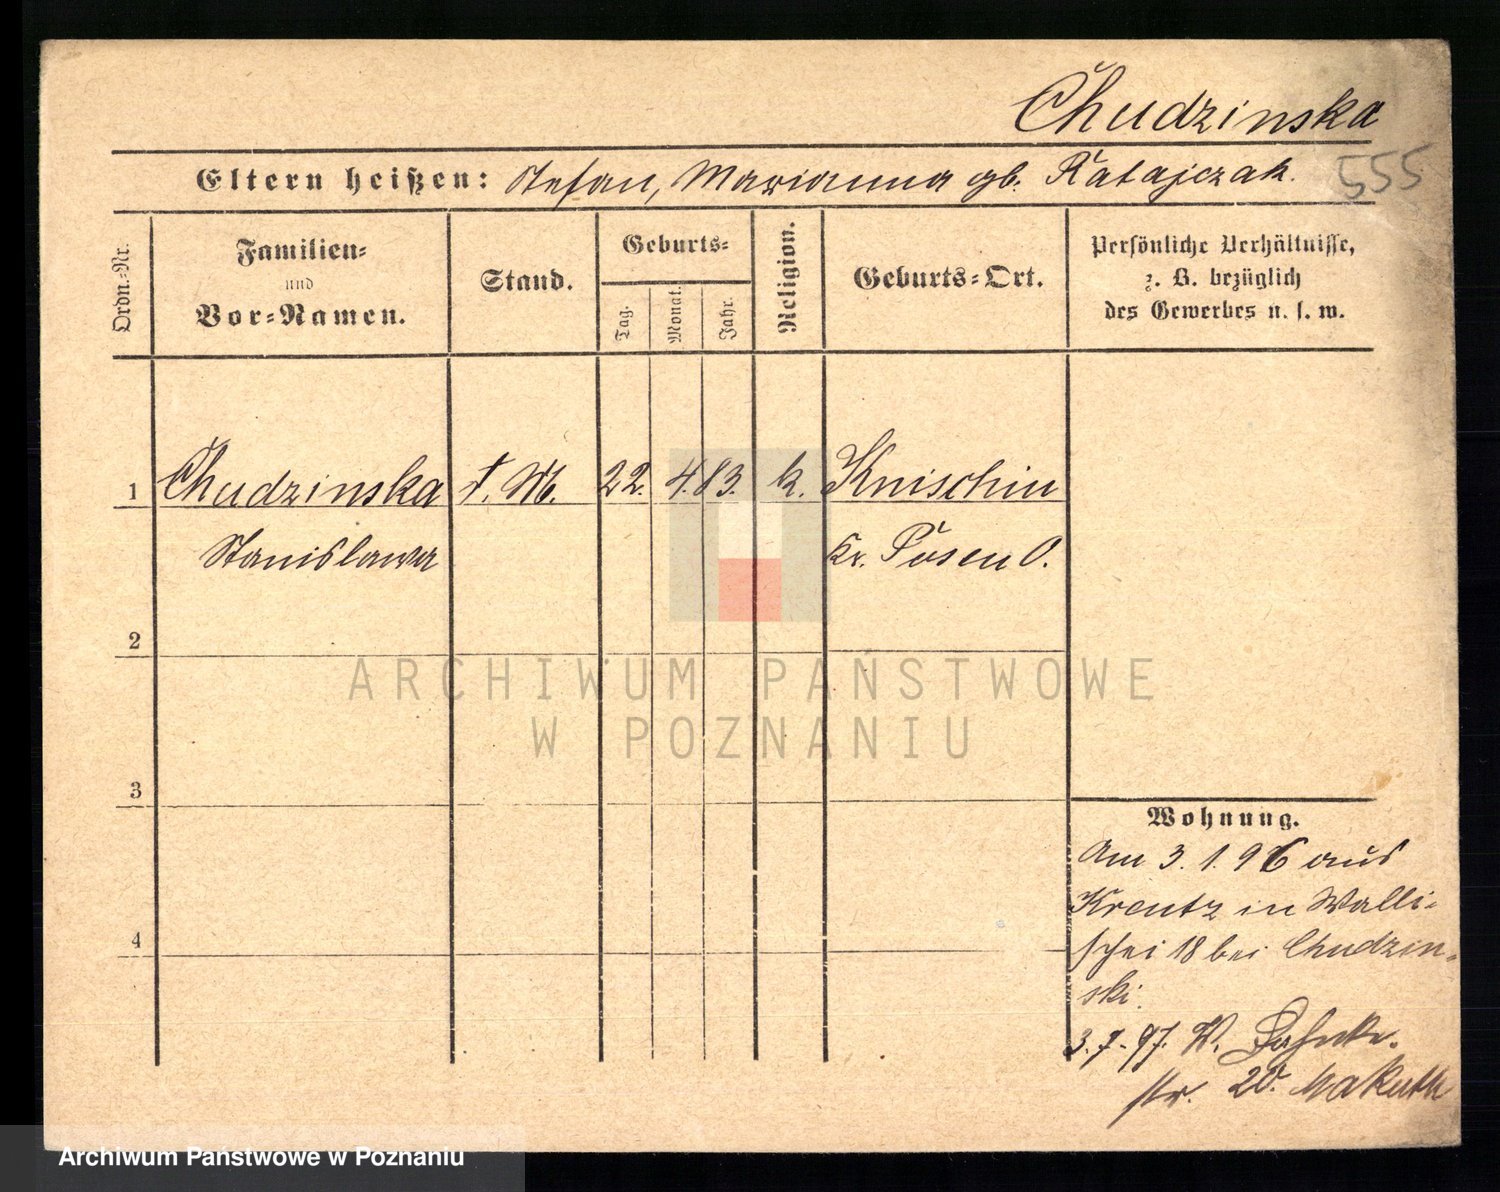 Chudzinska
Eltern heißen: Stefan, Marianna gb. Ratajczak.
555
Ordn.-Nr.
Familien-
und
Vor-Namen.
Stand.
Geburts-
Tag.
Monat.
Jahr.
Religion.
Geburts-Ort.
Persönliche Verhältnisse,
z. B. bezüglich
des Gewerbes u. s. w.
1 Chudzinska f. M. 22. 4. 83. k. Knischin
Stanislawa Kr. Posen O.
2
3
4
Wohnung.
Am 3. 1. 96 aus
Kreutz in Walli-
schei 18 bei Chudzin-
ski.
3. 7. 97. W.
str. 20. Makuth
ARCHIWUM PAŃSTWOWE
W POZNANIU
Archiwum Państwowe w Poznaniu